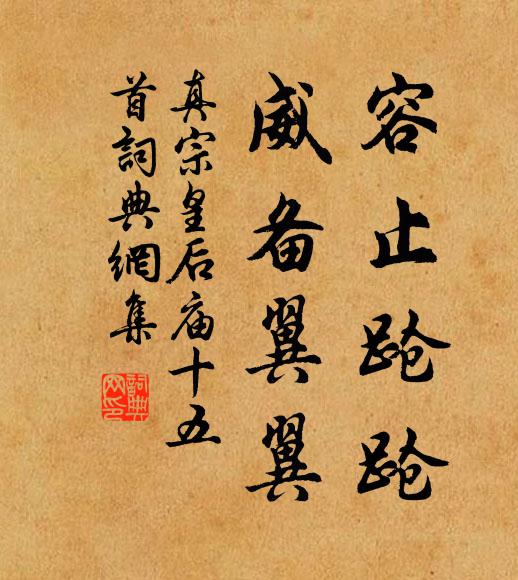 容止跄跄
威备翼翼
真宗皇后庙十五
首詞典網集
詞典
网印